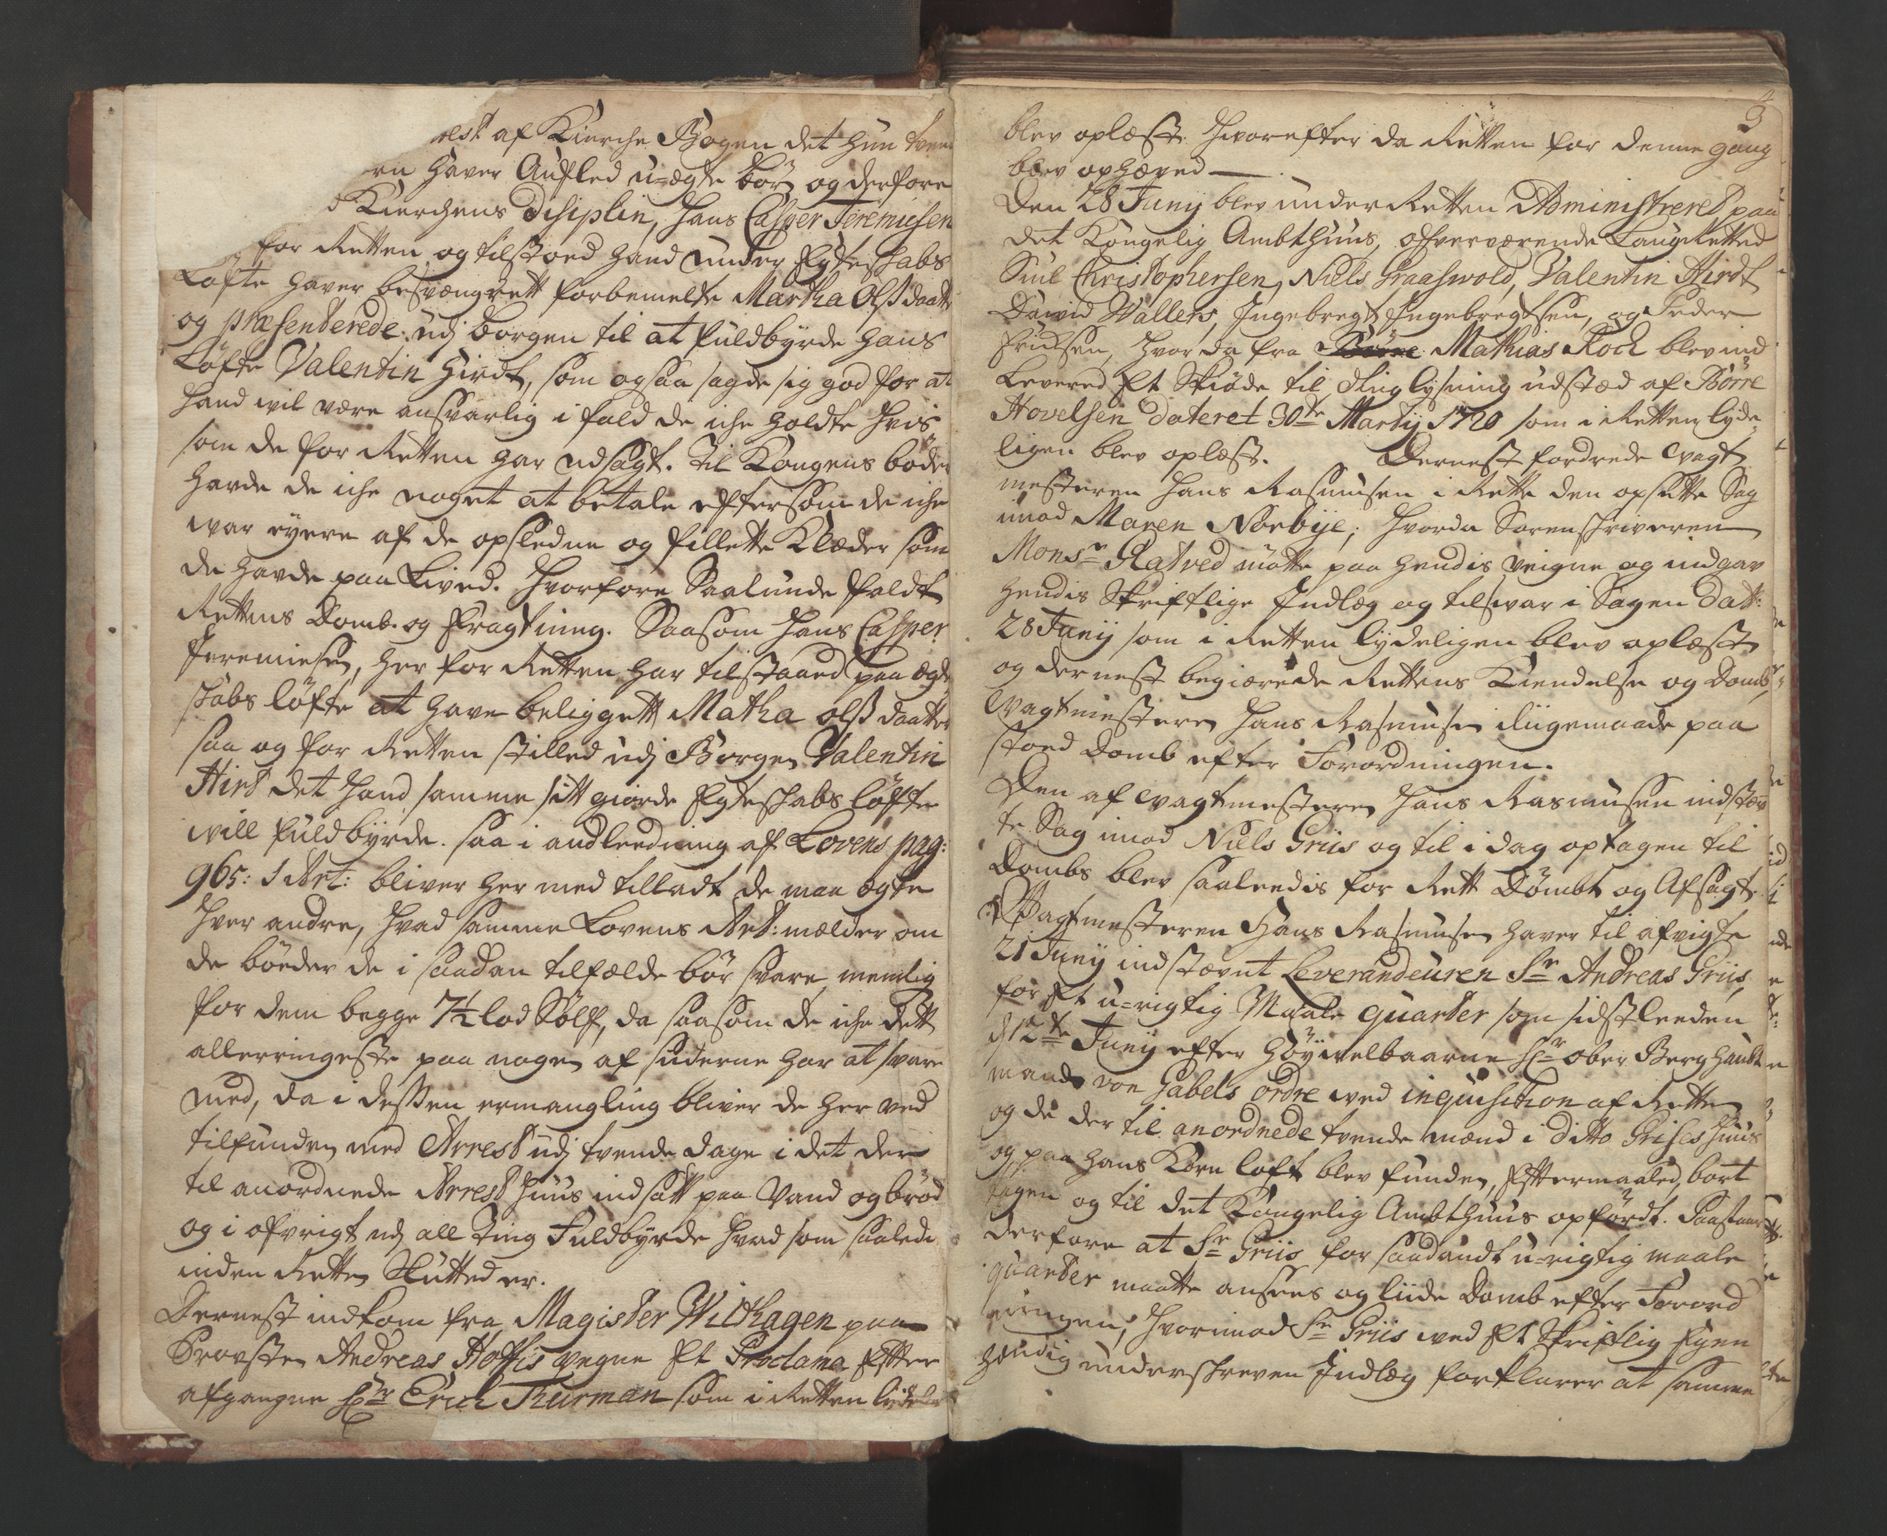 lest af Kierche Bogen det hun tven
ern haver Aufled u=ægte bör og derfore
d Kierchens Disiplin, Hans Casper Jeremiesen
for Retten og tilstoed hand under Egteschabs
Løfte haver besvængrett forbemelte Martha Olsdaatt
og præsenterede udj borgen til at fuldbyrde hans
Løfte Valentin Hirdt, som ogsaa sagde sig god for at
hand wil være ansvarlig i fald de iche holdte hvis
som de for Retten har udsagt. Til Kongens böder
hafde de iche noget at betale eftersom de iche
war eyere af de opsledne og fillette Klæder som
de hafde paa Lived. Hvorfore Saalunde faldt
Rettens Domb og Fragtning. Saasom Hans Casper
Jeremiesen, her for Retten har tilstaaed paa ægte
skabs löfte at have beliggett Matha olsdaatter
saa og for Retten stilled udj Borgen Valentin
Hirt det hand samme sitt giorde Egteschabs löfte
will fuldbyrde. saa i andleedning af Lovens pag:
965: 1 Art: bliver her med tilladt de maa ægte
hver andre, hvad samme Lovens Art: mælder om
de böeder de i saadan tilfælde bör svare, nemlig
for dem begge 7½ lod Sölf, da saasom de iche dett
allerringeste paa nogen af siderne har at svare
med, da i dessen ermangling bliver de her ved
tilfunden med Arrest udj tvende dage i det der
til anordnede Arrest huus indsatt paa Vand og bröd
og i ofvrigt udj all Ting Fuldbyrde hvad som saaledi
inden Retten Slutted er.
Dernest indkom fra Magister Wilhagen paa
Provsten Andreas Hoffis vegne Et Proclama Efter
afgangne Hr Erich Thurman som i Retten lydelig
3
blev oplæst. Hvorefter da Retten for denne gang
blev ophæved
Den 28 Junij blev under Retten Administreret paa
det Kongelig Ambthuus, ofververærende Laugretted
Siul Christophersen, Niels Graaswold, Valentin Hirdt
David Wallers, Ingebregt Ingebregtsen, og Peder
Erichsen, hvor da fra Mathias Kock blev ind
Leveret Et Skiöde til Tinglysning udstæd af Börre
Hovelsen dateret 30te Martij 1720 som i Retten lyde
ligen blev oplæst. Dernest fordrede Vagt
mesteren Hans Rasmusen i Rette den opsatte Sag
imod Maren Norbye, hvorda Sorenschriveren
Monsr Ratved mötte paa hendis veigne og indgav
hendis Skriftlige Indlæg og tilsvar i Sagen dat:
28 Junij som i Retten lydeligen blev oplæst
og dernest begiærede Rettens Kiendelse og Domb,
Vagtmesteren Hans Rasmusen iliigemaade paa
stoed Domb efter Forordningen.
Den af Vagtmesteren Hans Rasmusen indstæv
te Sag imod Niels Griis og til i dag optagen til
Dombs blev saaleedis for Rett Dömbt og Afsagt
Vagtmesteren Hans Rasmusen haver til afvigte
21 Junij indstævnt Leverandeuren Sr Andreas Griis,
for Et u=rigtig Maale quarter som sidstleeden
d 12te Junij efter Höyvelbaarne Hr ober Berghaubt
mands von Gabels ordre ved inquisition af Retten
og de der til anordnede tvende mænd i ditto Grises huus
og paa hans Korn loft blev funden, Eftermaaled, bort
tagen og til det Kongelig Ambthuus opfördt. Paastaar
derfore at Sr Griis for saadandt u=rigtig maale
quarter maatte ansees og liide Domb efter Forord
ningen, Hvorimod Sr Griis ved Et Skriftlig Egen
hendig underschreven Indlæg forklarer at samme